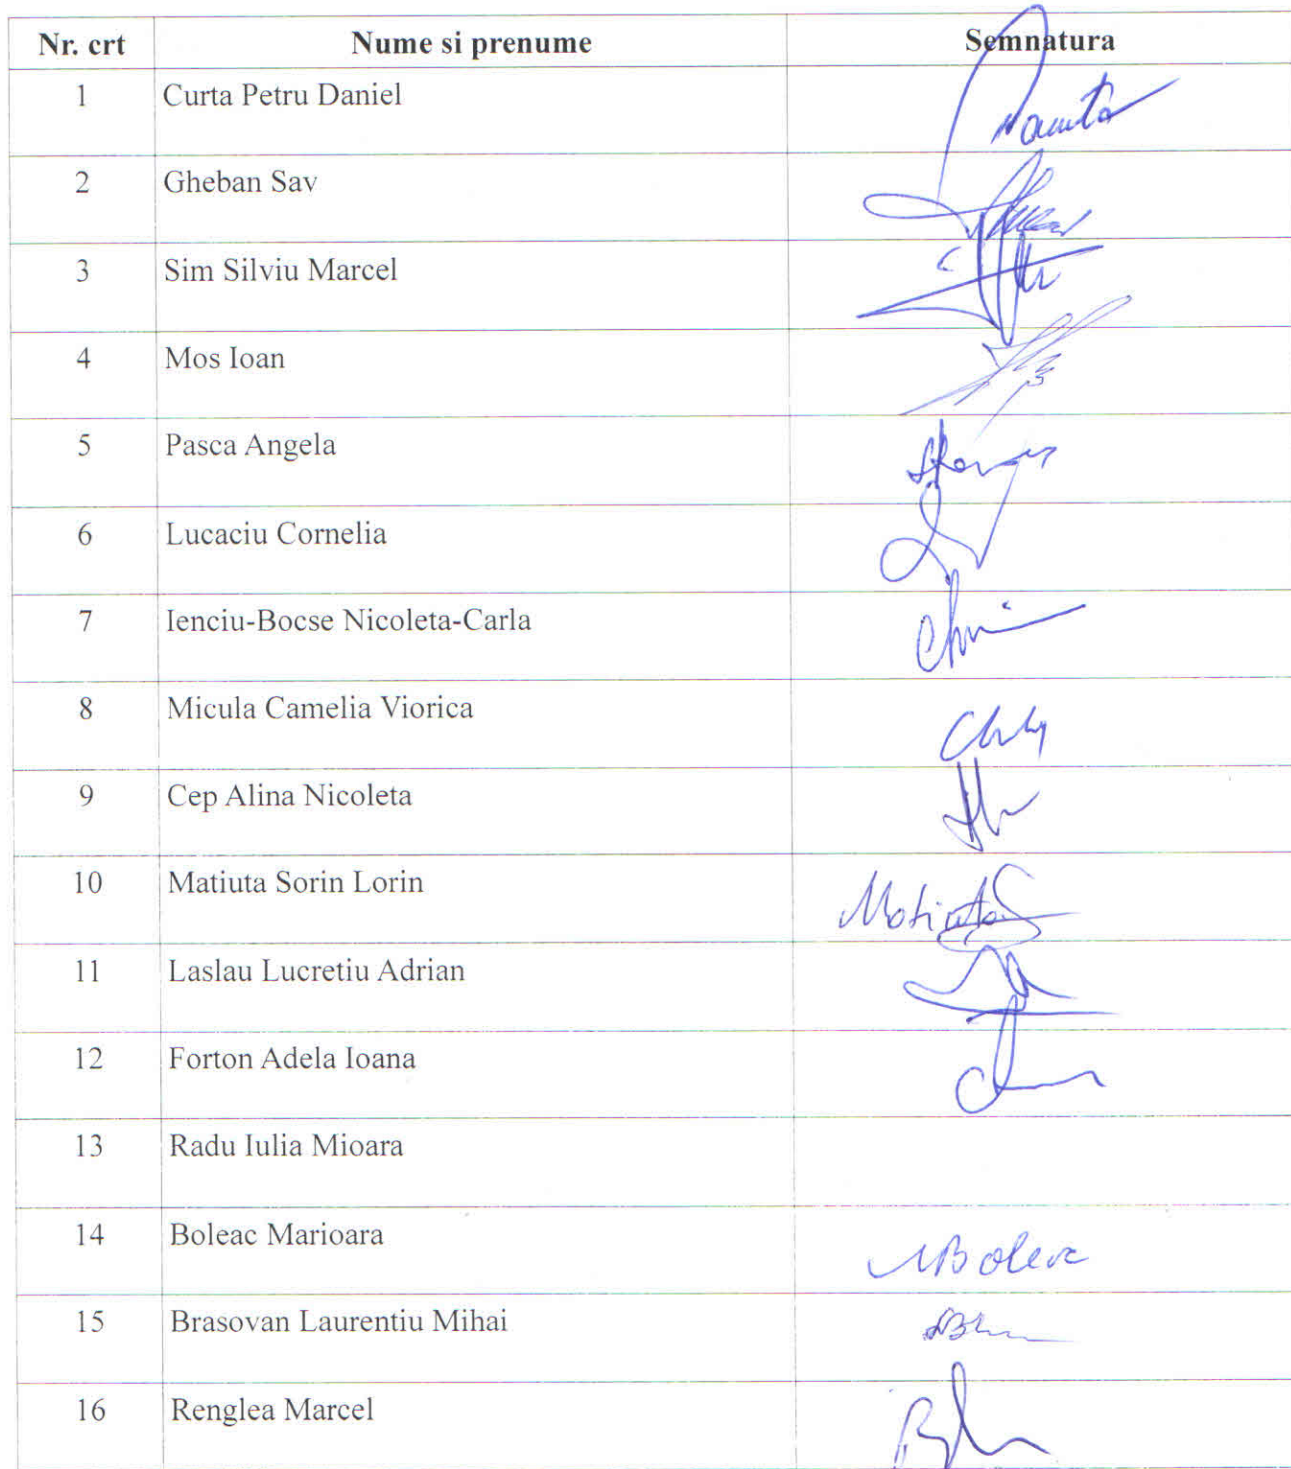 Nr. crt Nume si prenume Semnatura
1 Curta Petru Daniel
2 Gheban Sav
3 Sim Silviu Marcel
4 Mos Ioan
5 Pasca Angela
6 Lucaciu Cornelia
7 Ienciu-Bocse Nicoleta-Carla
8 Micula Camelia Viorica
9 Cep Alina Nicoleta
10 Matiuta Sorin Lorin Matiuta
11 Laslau Lucretiu Adrian
12 Forton Adela Ioana
13 Radu Iulia Mioara
14 Boleac Marioara
15 Brasovan Laurentiu Mihai
16 Renglea Marcel